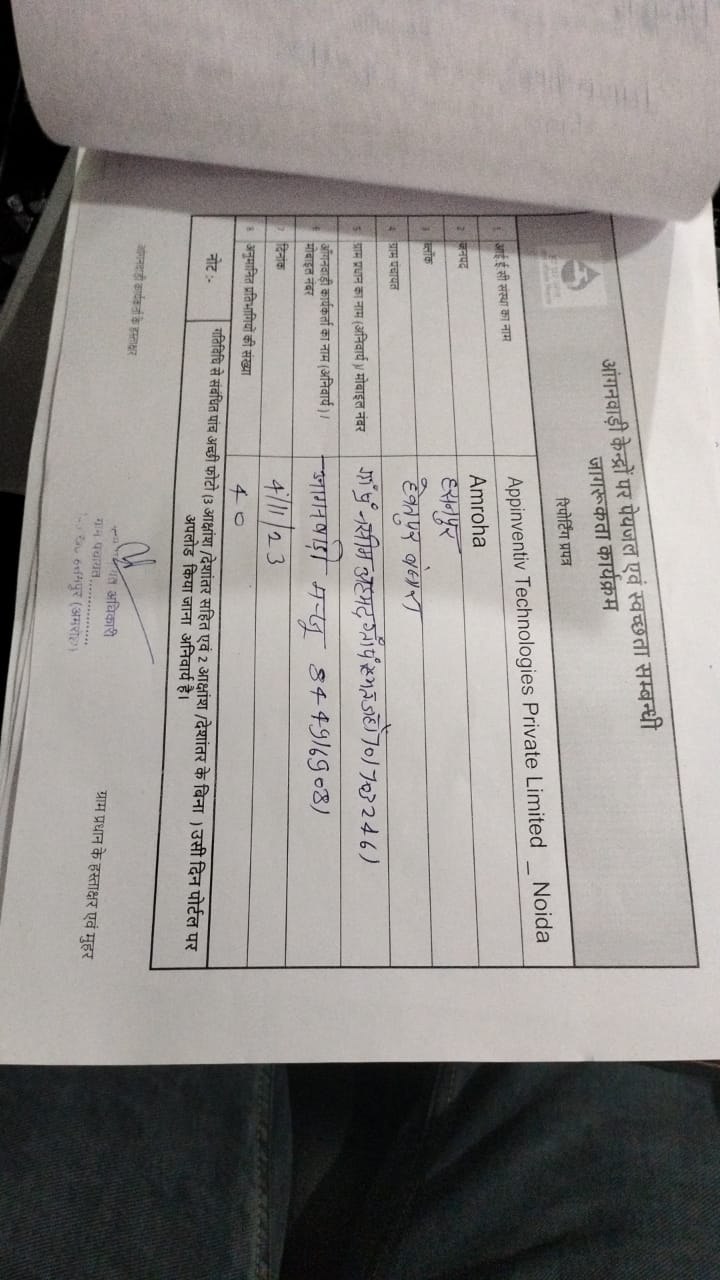 आंगनवाड़ी केन्द्रों पर पेयजल एवं स्वच्छता सम्बन्धी
जागरूकता कार्यक्रम
रिपोर्टिंग प्रपत्र
1 आई ई सी संस्था का नाम Appinventiv Technologies Private Limited _ Noida
2 जनपद Amroha
3 ब्लॉक हसनपुर
4 ग्राम पंचायत
5 ग्राम प्रधान का नाम (अनिवार्य)/ मोबाइल नंबर
6 आँगनवाड़ी कार्यकर्ता का नाम (अनिवार्य) /
मोबाइल नंबर 8449169081
7 दिनांक 4/11/23
8 अनुमानित प्रतिभागियों की संख्या 40
नोट :- गतिविधि से संबंधित पांच अच्छी फोटो (3 आक्षांश /देशांतर सहित एवं 2 आक्षांश /देशांतर के बिना ) उसी दिन पोर्टल पर
अपलोड किया जाना अनिवार्य है।
आंगनवाड़ी कार्यकर्ता के हस्ताक्षर
अधिकारी
ग्राम पंचायत..............
ग्राम प्रधान के हस्ताक्षर एवं मुहर